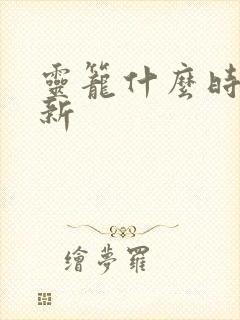 靈籠什麼時
新
繪夢羅